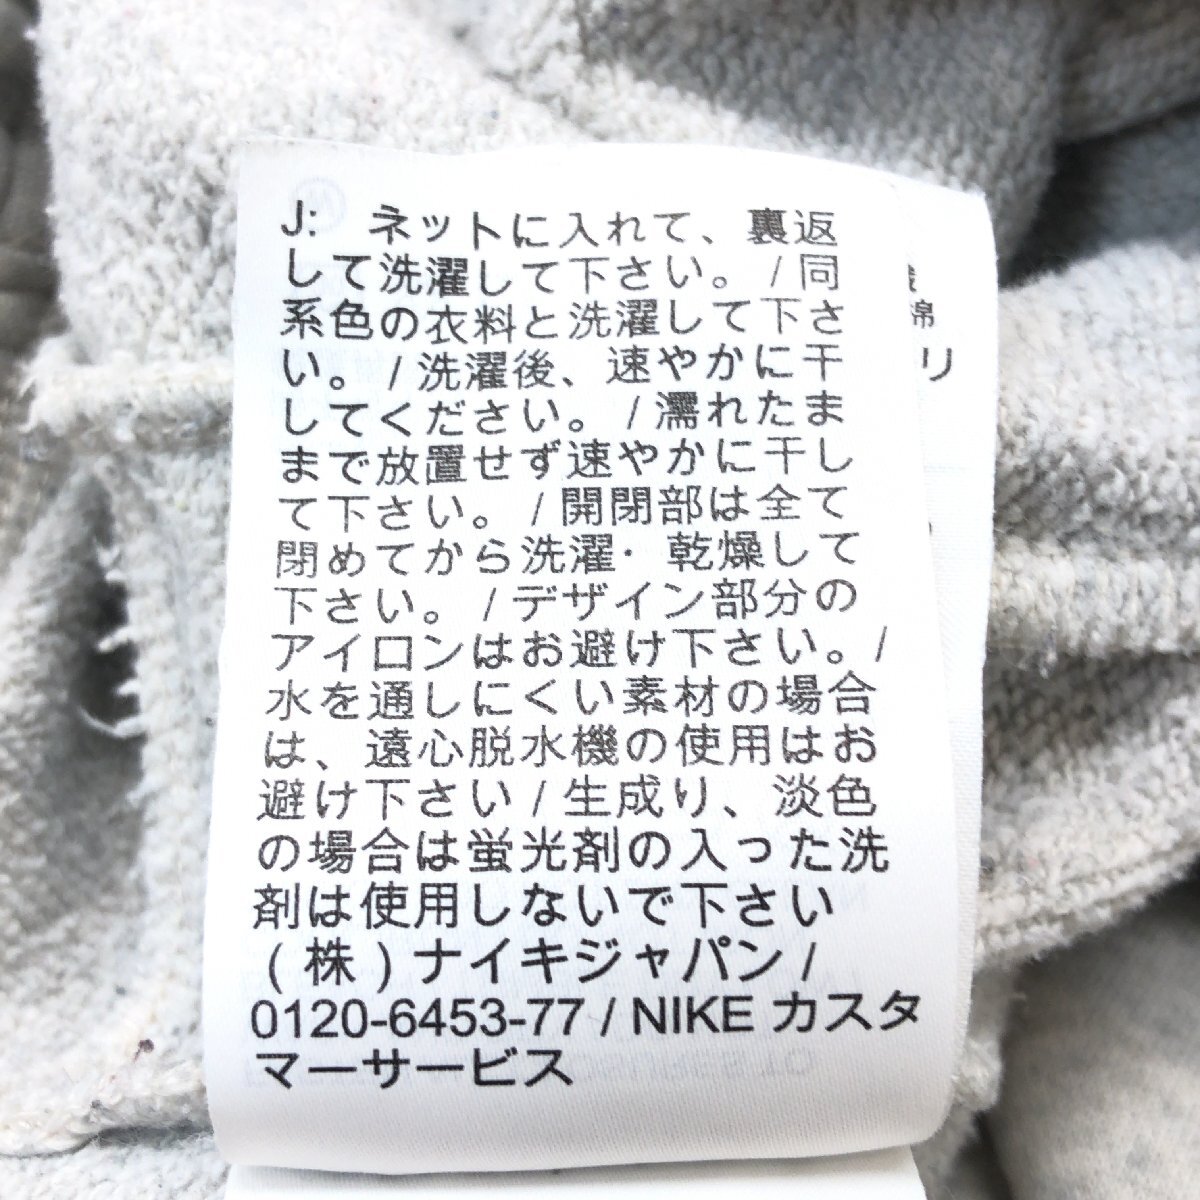 J: ネットに入れて、裏返
して洗濯して下さい。/ 同
系色の衣料と洗濯して下さ
い。/ 洗濯後、速やかに干
してください。/ 濡れたま
まで放置せず速やかに干し
て下さい。/ 開閉部は全て
閉めてから洗濯・乾燥して
下さい。/ デザイン部分の
アイロンはお避け下さい。/
水を通しにくい素材の場合
は、遠心脱水機の使用はお
避け下さい / 生成り、淡色
の場合は蛍光剤の入った洗
剤は使用しないで下さい
(株) ナイキジャパン /
0120-6453-77 / NIKE カスタ
マーサービス
綿
リ